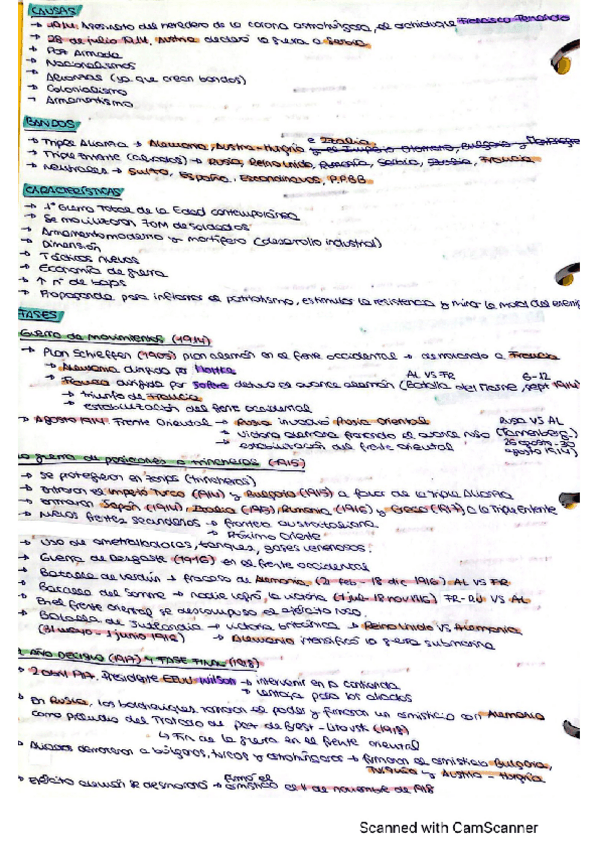 CAUSAS
→ 1914. Asesinato del heredero de la corona austrohúngara, el archiduque Francisco Fernando
→ 28 de julio 1914, Austria declaró la guerra a Serbia
→ Paz Armada
→ Nacionalismos
→ Alianzas (ya que crean bandos)
→ Colonialismo
→ Armamentismo
BANDOS
e Italia
→ Triple Alianza → Alemania, Austria-Hungría y el Imperio Otomano, Bulgaria y
→ Triple Entente (aliados) → Rusia, Reino Unido, Rumanía, Serbia, Italia, Francia
→ Neutrales → Suiza, España, Escandinavos, PPBB
CARACTERÍSTICAS
→ 1ª Guerra Total de la Edad contemporánea
→ Se movilizaron 70M de soldados
→ Armamento moderno y mortífero (desarrollo industrial)
→ Dimensión
→ Técnicas nuevas
→ Economía de guerra
→ ↑ nº de bajas
→ Propaganda para inflamar de patriotismo, estimular la resistencia y minar la moral del enemigo
FASES
Guerra de movimientos (1914)
→ Plan Schlieffen (1905) plan alemán en el frente occidental →
→ Alemania dirigida por Moltke AL VS FR 6-12
→ Francia dirigida por Joffre detuvo el avance alemán (Batalla del Marne, sept 1914)
→ triunfo de Francia
→ estabilización del frente occidental
→ Agosto 1914. Frente Oriental → Rusia invadió Prusia Oriental RUSIA VS AL
→ Victoria alemana frenando el avance ruso (Tannenberg)
→ estabilización del frente Oriental 26 agosto - 30 agosto 1914)
La guerra de posiciones o trincheras (1915)
→ Se protegieron en zanjas (trincheras)
→ Entraron el Imperio Turco (1914) y Bulgaria (1915) a favor de la Triple Alianza
→ Entraron Japón (1914), Italia (1915) Rumanía (1916) y Grecia (1917) a la Triple Entente
→ Nuevos frentes secundarios → frontera austroitaliana
→ Próximo Oriente
→ Uso de ametralladoras, tanques, gases venenosos.
→ Guerra de Desgaste (1916) en el frente occidental
→ Batalla de Verdún → fracaso de Alemania, (21 feb - 18 dic 1916) AL VS FR
→ Batalla del Somme → nadie logró la victoria (1 jul - 18 nov 1916) FR-RU VS AL
→ En el frente oriental se descompuso el ejército ruso.
→ Batalla de Jutlandia → victoria británica → Reino Unido VS Alemania
(31 mayo - 1 junio 1916) → Alemania intensificó la guerra submarina
AÑO DECISIVO (1917) Y FASE FINAL (1918)
→ 2 abril 1917. Presidente EEUU Wilson → intervenir en la contienda
→ ventaja para los aliados
→ En Rusia, los bolcheviques tomaron el poder y firmaron un armisticio con Alemania
como preludio del Tratado de paz de Brest-Litovsk (1918)
↳ Fin de la guerra en el frente oriental
→ Aliados derrotaron a búlgaros, turcos y austrohúngaros → firmaron el armisticio Bulgaria,
Turquía y Austria-Hungría
→ Ejército alemán se desmoronó → firmó el armisticio el 11 de noviembre de 1918
Scanned with CamScanner